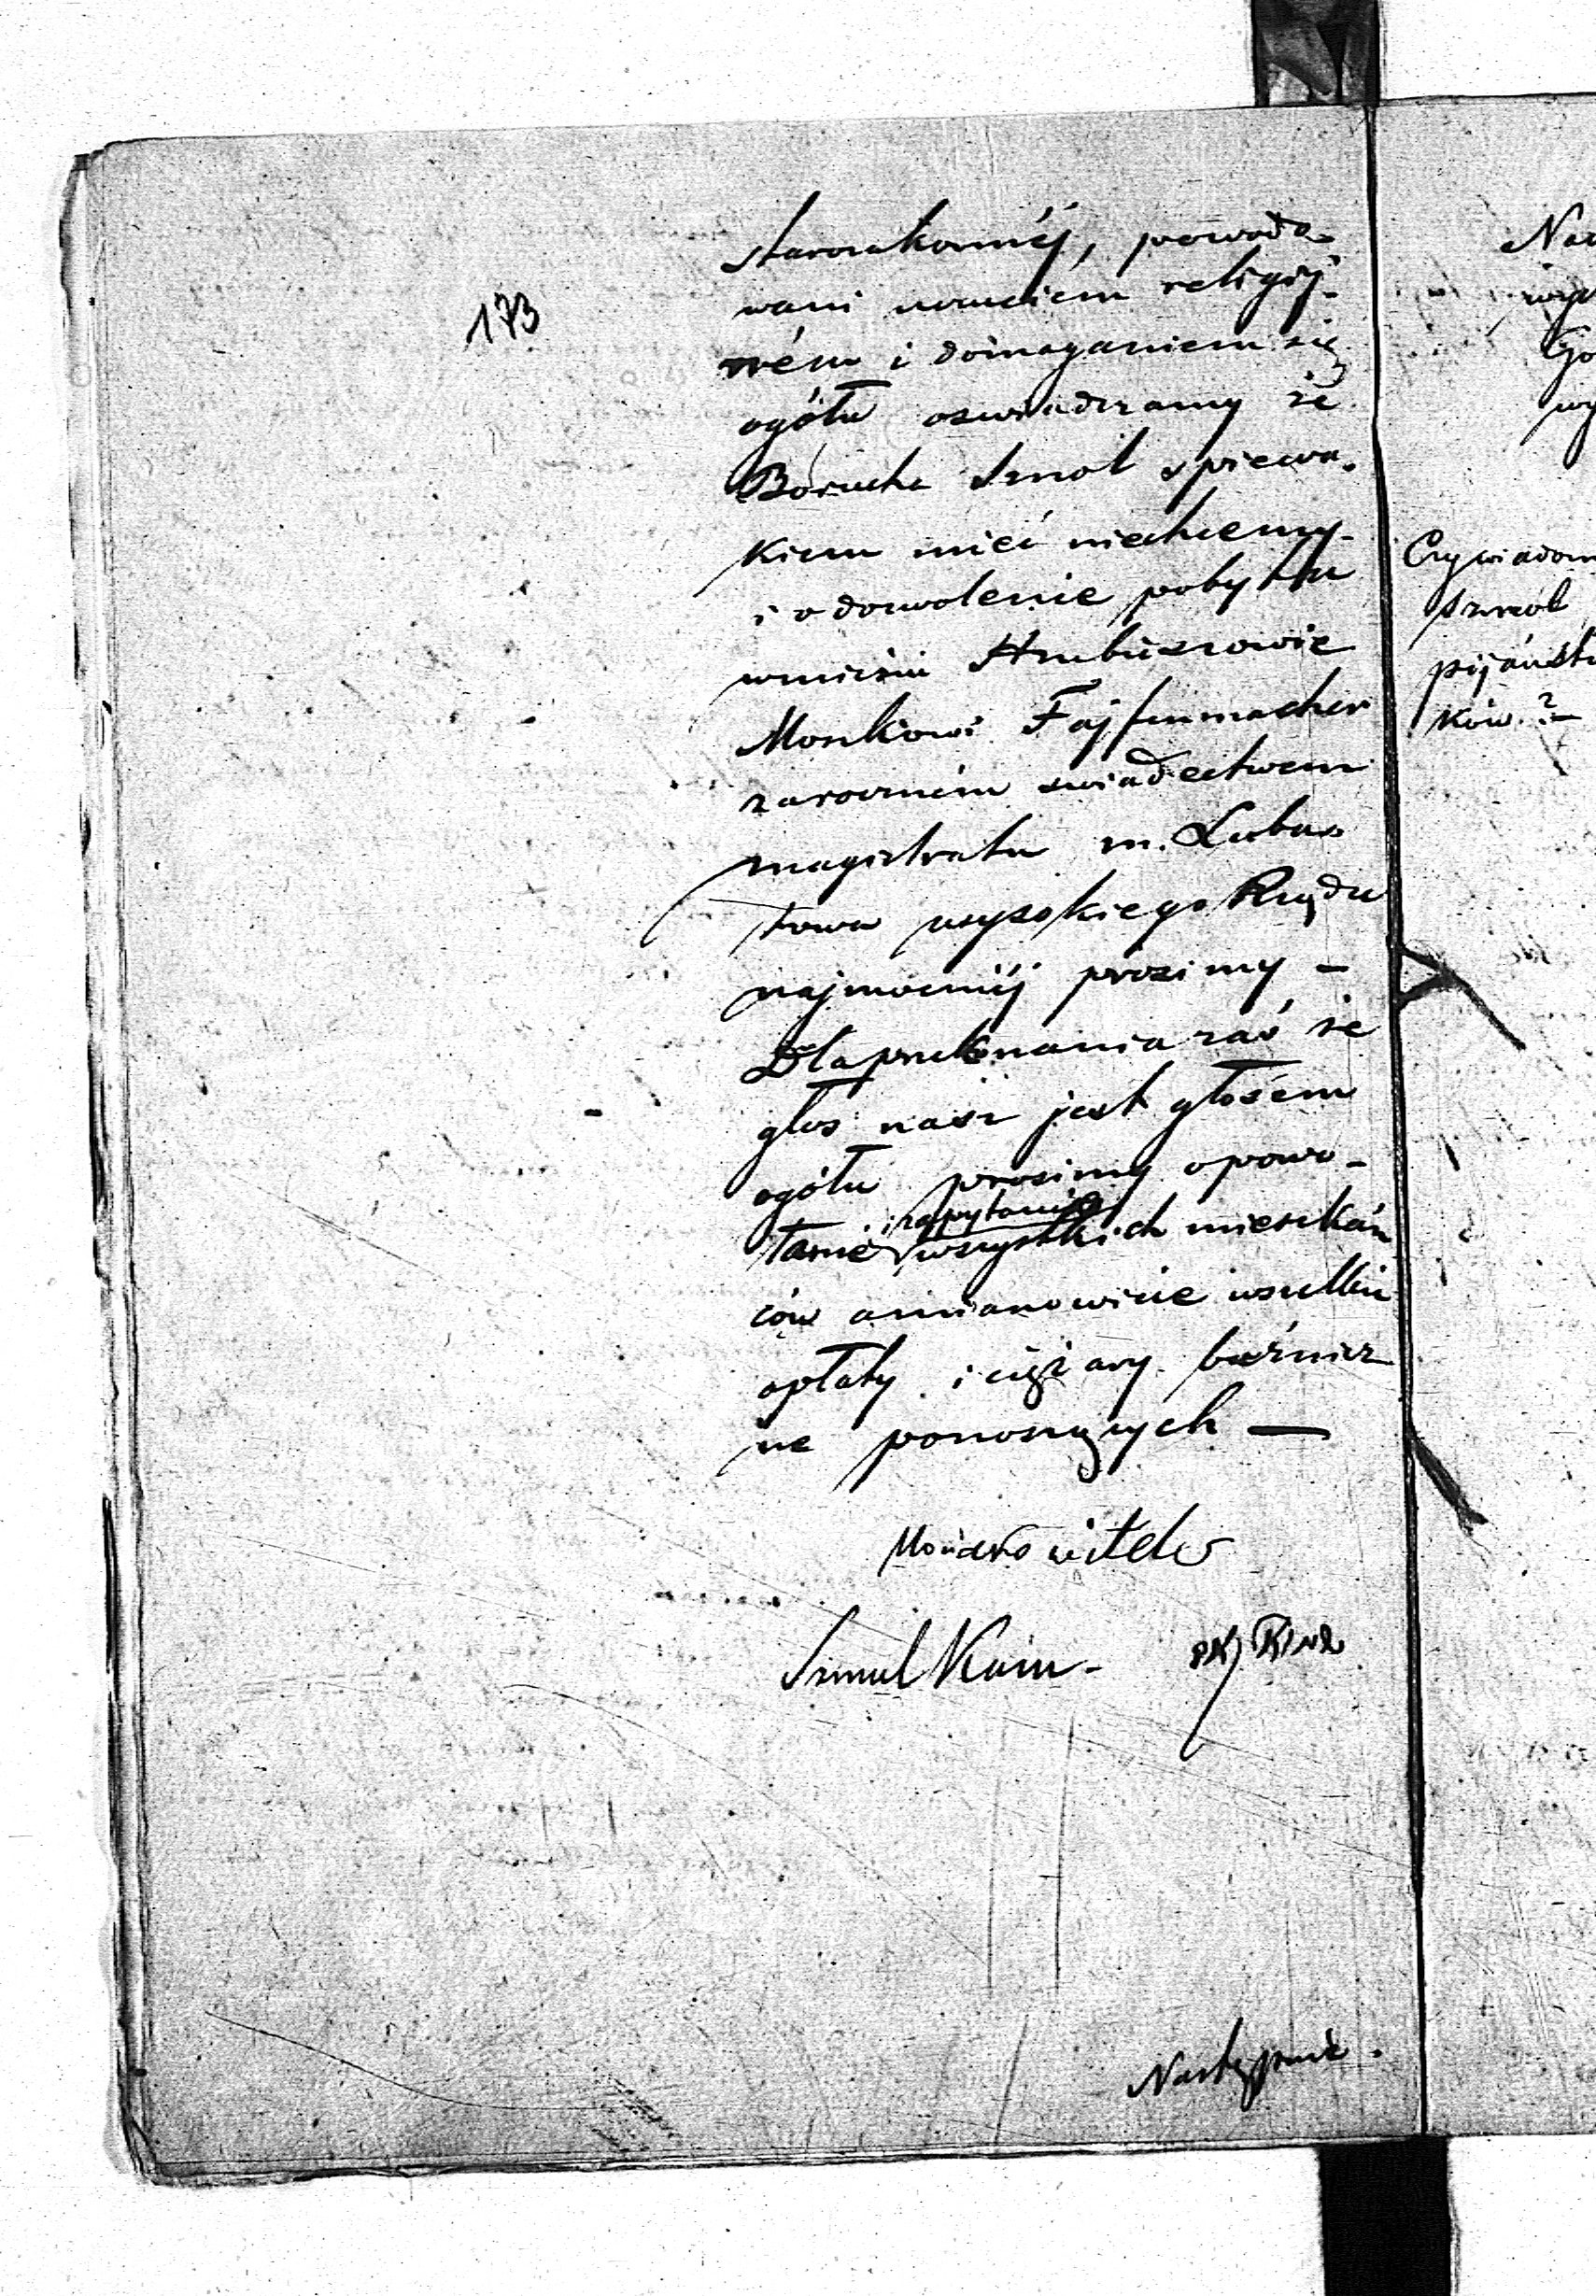 173
Starozakonnéj, powodo-
wani uczuciem religij-
ném i domaganiem się
ogółu oswiadczamy że
Borucha Szmol spiewa-
kiem mieć niechcemy -
i o dozwolenie pobytu
wmieście Hrubieszowie
Moszkowi Fajfermacher
zaroczném swiadectwem
magistratu m. Luba-
towa wysokiego Rządu
najmocniéj prosimy -
Dla przekonania zaś że
głos nasz jest głosem
ogółu prosimy opowo-
łanie i zapytanie wszystkich mieszkań
ców amianowicie wszelkie
opłaty i ciężary bożnicz
ne ponoszących —
Szmul Kam -
Następnie.
Czy wiadom
Szmol
pijaństw
ków ? -